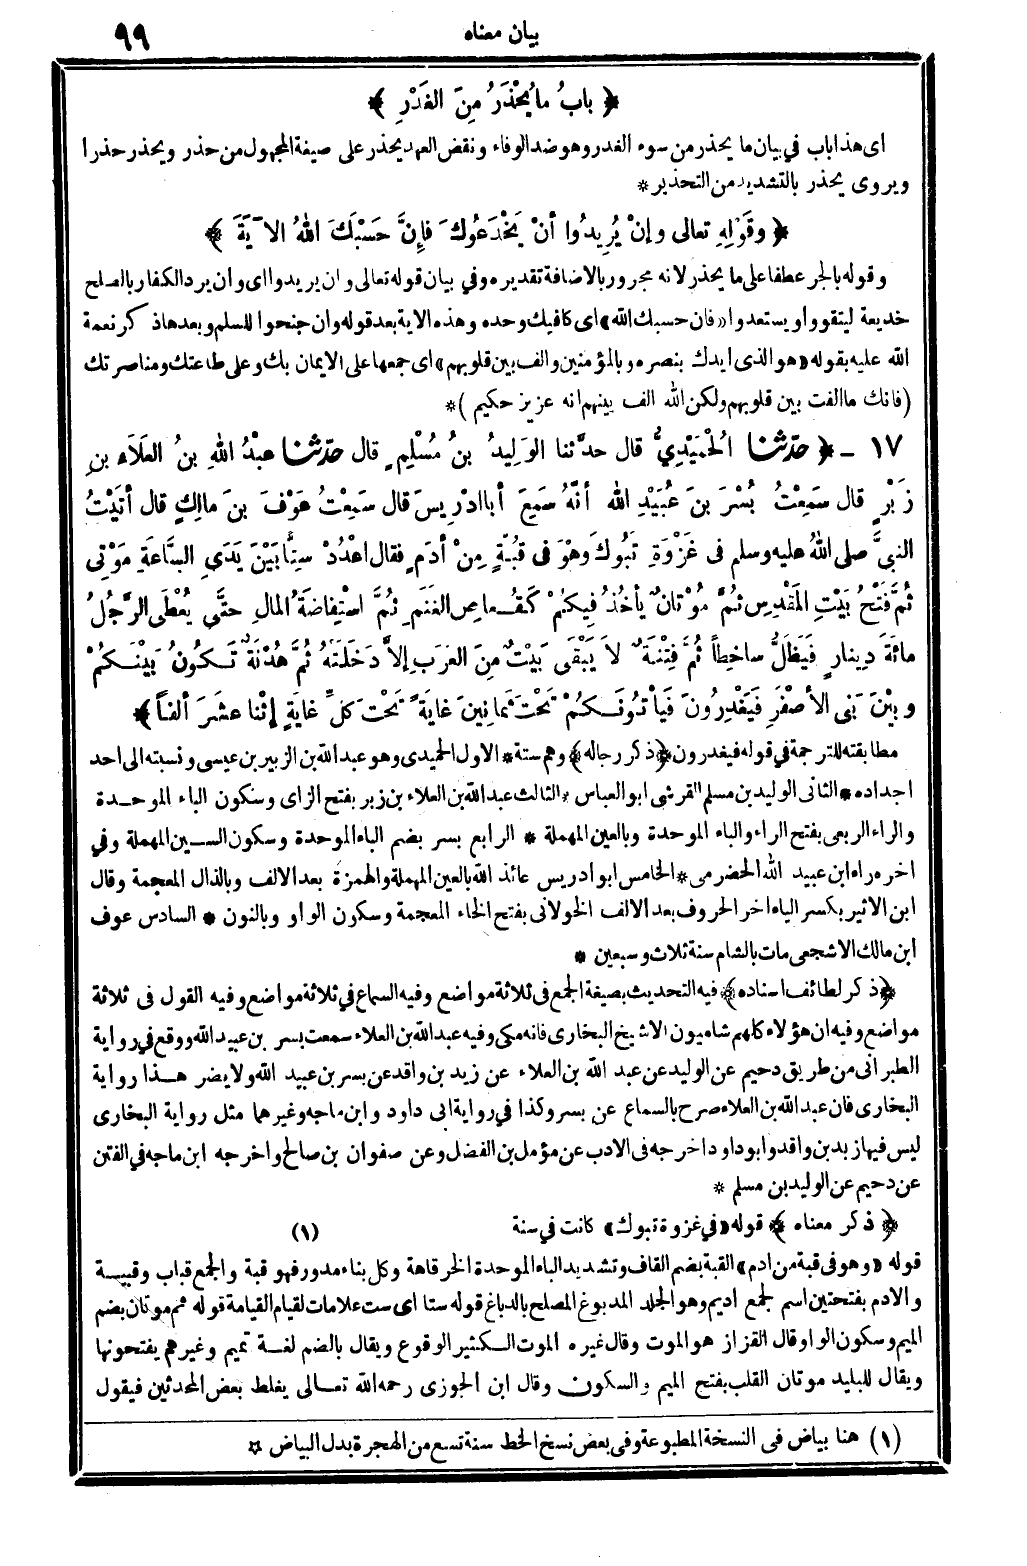 بيان معناه ٩٩
﴿ بابُ ما يُحْذَرُ مِنَ الغَدْرِ ﴾
اى هذا باب في بيان ما يحذر من سوء الغدر وهو ضد الوفاء ونقض العهد يحذر على صيغة المجهول من حذر ويحذر حذرا
ويروى يحذر بالتشديد من التحذير *
﴿ وقَوْلِهِ تعالى وإنْ يُرِيدُوا أنْ يَخْدَعُوكَ فإنَّ حَسْبَكَ اللهُ الآيَةَ ﴾
وقوله بالجر عطفا على ما يحذر لانه مجرور بالاضافة تقديره وفي بيان قوله تعالى وان يريدوا اى وان يرد الكفار بالصلح
خديعة ليتقووا ويستعدوا «فان حسبك الله» اى كافيك وحده وهذه الاية بعد قوله وان جنحوا للسلم وبعدها ذكر نعمة
الله عليه بقوله «هو الذى ايدك بنصره وبالمؤمنين والف بين قلوبهم» اى جمعها على الايمان بك وعلى طاعتك ومناصرتك
(فانك ما الفت بين قلوبهم ولكن الله الف بينهم انه عزيز حكيم) *
١٧ ـ ﴿ حدّثنا الحُمَيْدِيُّ قال حدّثنا الوَلِيدُ بنُ مُسْلِمٍ قال حدّثنا عبْدُ اللهِ بنُ العَلاَءِ بنِ
زَبْرٍ قال سَمِعْتُ بُسْرَ بنَ عُبَيْدِ الله أنَّهُ سَمِعَ أبا ادْرِيسَ قال سَمِعْتُ عَوْفَ بنَ مالِكٍ قال أتَيْتُ
النبيَّ صلى اللهُ عليه وسلم في غَزْوَةِ تَبُوكَ وهْوَ في قُبَّةٍ مِنْ أدَمٍ فقال اعْدُدْ سِتًّا بَيْنَ يَدَيِ السَّاعَةِ مَوْتِي
ثُمَّ فَتْحُ بَيْتِ المَقْدِسِ ثُمَّ مُوْتانٌ يأخُذُ فِيكُمْ كَقُـعاصِ الغَنَمِ ثُمَّ اسْتِفاضَةُ المالِ حتَّى يُعْطَى الرَّجُلُ
مائَةَ دِينارٍ فَيَظَلُّ ساخِطاً ثُمَّ فِتْنَةٌ لا يَبْقَى بَيْتٌ مِنَ العَرَبِ إلاَّ دَخَلَتْهُ ثُمَّ هُدْنَةٌ تَكُونُ بَيْنَكُمْ
وبَيْنَ بَنِي الأصْفَرِ فَيَغْدِرُونَ فَيأْتُونَكُمْ تَحْتَ ثَمانِينَ غايَةً تَحْتَ كلِّ غايَةٍ إثْنا عشَرَ ألفاً ﴾
مطابقته للترجمة في قوله فيغدرون ﴿ذكر رجاله﴾ وهم ستة * الاول الحميدى وهو عبدالله بن الزبير بن عيسى ونسبته الى احد
اجداده * الثانى الوليد بن مسلم القرشى ابو العباس * الثالث عبدالله بن العلاء بن زبر بفتح الزاى وسكون الباء الموحدة
والراء الربعى بفتح الراء والباء الموحدة وبالعين المهملة * الرابع بسر بضم الباء الموحدة وسكون السين المهملة وفي
اخره راء ابن عبيد الله الحضرمى * الخامس ابو ادريس عائذ الله بالعين المهملة والهمزة بعد الالف وبالذال المعجمة وقال
ابن الاثير بكسر الياء اخر الحروف بعد الالف الخولانى بفتح الخاء المعجمة وسكون الواو وبالنون * السادس عوف
ابن مالك الاشجعى مات بالشام سنة ثلاث وسبعين *
﴿ذكر لطائف اسناده﴾ فيه التحديث بصيغة الجمع في ثلاثة مواضع وفيه السماع في ثلاثة مواضع وفيه القول في ثلاثة
مواضع وفيه ان هؤلاء كلهم شاميون الا شيخ البخارى فانه مكى وفيه عبدالله بن العلاء سمعت بسر بن عبيد الله ووقع في رواية
الطبرانى من طريق دحيم عن الوليد عن عبد الله بن العلاء عن زيد بن واقد عن بسر بن عبيد الله ولا يضر هذا رواية
البخارى فان عبدالله بن العلاء صرح بالسماع عن بسر وكذا في رواية ابى داود وابن ماجه وغيرهما مثل رواية البخارى
ليس فيها زيد بن واقد وابو داود اخرجه في الادب عن مؤمل بن الفضل وعن صفوان بن صالح واخرجه ابن ماجه في الفتن
عن دحيم عن الوليد بن مسلم *
﴿ ذكر معناه ﴾ قوله «في غزوة تبوك» كانت في سنة (١)
قوله «وهو في قبة من ادم» القبة بضم القاف وتشديد الباء الموحدة الخرقاهة وكل بناء مدور فهو قبة والجمع قباب وقببة
والادم بفتحتين اسم لجمع اديم وهو الجلد المدبوغ المصلح بالدباغ قوله ستا اى ست علامات لقيام القيامة قوله ثم موتان بضم
الميم وسكون الواو قال القزاز هو الموت وقال غيره الموت الكثير الوقوع ويقال بالضم لغة تميم وغيرهم يفتحونها
ويقال للبليد موتان القلب بفتح الميم والسكون وقال ابن الجوزى رحمه الله تعالى يغلط بعض المحدثين فيقول
(١) هنا بياض في النسخة المطبوعة وفي بعض نسخ الخط سنة تسع من الهجرة بدل البياض ☆